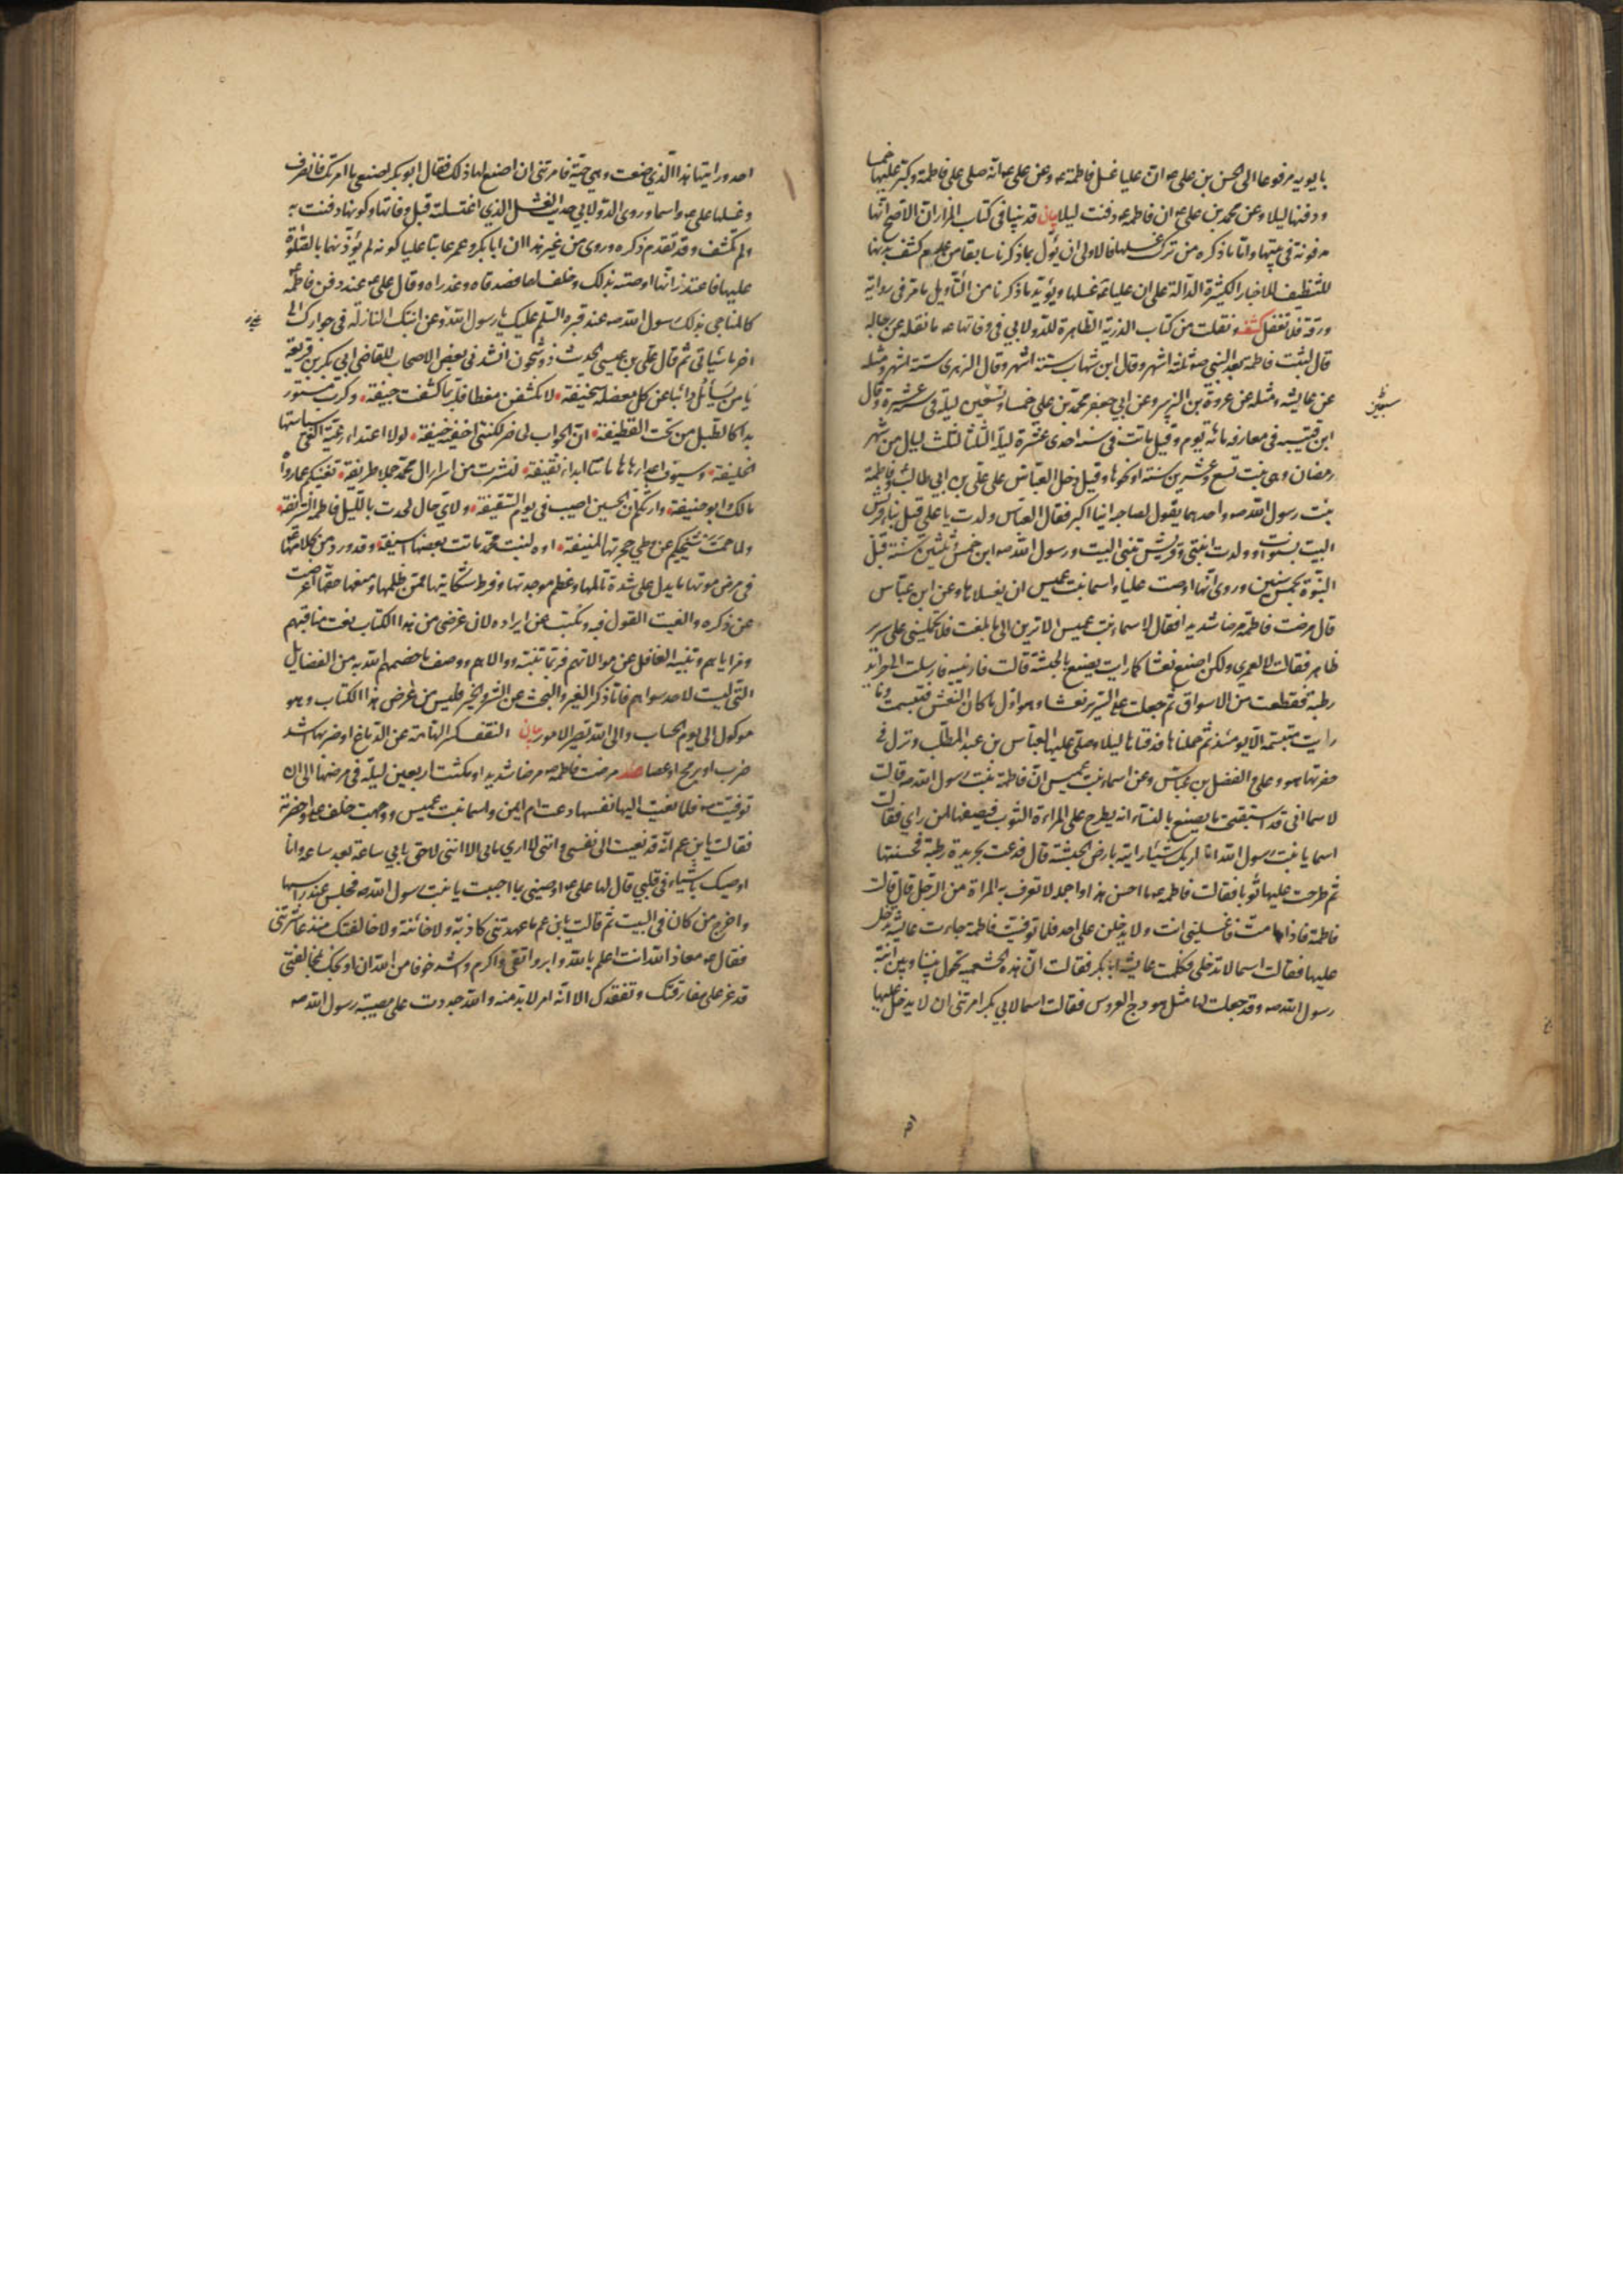 بابويه مرفوعا الى الحسن بن علي ع ان عليا غسل فاطمة ع وعن علي ع انه صلى على فاطمة وكبر عليها خمسا
ودفنها ليلا وعن محمد بن علي ع ان فاطمة ع دفنت ليلا بيان قد بينا في كتاب المزار ان الاصح انها
مدفونة في بيتها واما ما ذكره من ترك غسلها فالاولى ان يؤل بما ذكرنا سابقا من عدم كشف بدنها
للتنظيف للاخبار الكثيرة الدالة على ان عليا ع غسلها ويؤيد ما ذكرنا من التأويل ما مر في رواية
ورقة فلا تغفل كشف ونقلت من كتاب الذرية الطاهرة للدولابي في وفاتها ع ما نقله عن رجاله
قال لبثت فاطمة بعد النبي ص ثلثة اشهر وقال ابن شهاب ستة اشهر وقال الزهري ستة اشهر ومثله
عن عايشه ومثله عن عروة بن الزبير وعن ابي جعفر محمد بن علي خمسا وتسعين ليلة في سنة احدى عشرة وقال
ابن قتيبه في معارفه مائة يوم وقيل ماتت في سنة احدى عشرة ليلة الثلثا لثلث ليال من شهر
رمضان وهي بنت تسع وعشرين سنة او نحوها وقيل دخل العباس على علي بن ابي طالب وفاطمة
بنت رسول الله ص واحدهما يقول لصاحبه اينا اكبر فقال العباس ولدت يا علي قبل بناء قريش
البيت بسنوات وولدت ابنتي وقريش تبني البيت ورسول الله ص ابن خمس وثلثين سنة قبل
النبوة بخمس سنين وروى انها اوصت عليا واسما بنت عميس ان يغسلاها وعن ابن عباس
قال مرضت فاطمة مرضا شديدا فقالت لاسماء بنت عميس الا ترين الى ما بلغت فلا تحمليني على سرير
ظاهر فقالت لا لعمري ولكن اصنع نعشا كما رايت يصنع بالحبشة قالت فارنيه فارسلت الى جرايد
رطبة فقطعت من الاسواق ثم جعلت على السرير نعشا وهو اول ما كان النعش فتبسمت وما
رايت متبسمة الا يومئذ ثم حملناها فدفناها ليلا وصلى عليها العباس بن عبد المطلب ونزل في
حفرتها هو وعلي والفضل بن عباس وعن اسماء بنت عميس ان فاطمة بنت رسول الله ص قالت
لاسما اني قد استقبحت ما يصنع بالنساء انه يطرح على المراءة الثوب فيصفها لمن راى فقالت
اسما يا بنت رسول الله انا اريك شيئا رايته بارض الحبشة قال فدعت بجريدة رطبة فحسنتها
ثم طرحت عليها ثوبا فقالت فاطمة ع ما احسن هذا واجمله لا تعرف به المراة من الرجل قال قالت
فاطمة فاذا مت فاغسليني انت ولا يدخلن علي احد فلما توفيت فاطمة جاءت عايشه تدخل
عليها فقالت اسما لا تدخلي فكلمت عايشه ابا بكر فقالت ان هذه الخثعمية تحول بيننا وبين ابنة
رسول الله ص وقد جعلت لها مثل هودج العروس فقالت اسما لابي بكر امرتني ان لا يدخل عليها
احد وراَيتها هذا الذي صنعت وهي حية فامرتني ان اصنع لها ذلك فقال ابو بكر اصنعي ما امرتك فانصرف
وغسلها علي ع واسما وروى الدولابي حديث الغسل الذي اغتسلته قبل وفاتها وكونها دفنت به
ولم تكشف وقد تقدم ذكره وروى من غير هذا ان ابا بكر وعمر عاتبا عليا كونه لم يؤذنهما بالصلوة
عليها فاعتذر انها اوصته بذلك وحلف لهما فصدقاه وعذراه وقال علي ع عند دفن فاطمة ع
كالمناجي بذلك رسول الله ص عند قبره السلم عليك يا رسول الله وعن ابنتك النازلة في جوارك الى
اخر ما سياتي ثم قال علي بن عيسى الحديث ذو شجون انشدني بعض الاصحاب للقاضي ابي بكر بن قريعة
يا من يسأئل دائبا عن كل معضلة سخيفة لا تكشفن مغطا فلربما كشفت جيفة ولرب مستور
بدا كالطبل من تحت القطيفة ان الجواب لحاضر لكنني اخفيه خيفة لولا اعتداء رعية القى سياستها
الخليفة وسيوف اعداء بها هاماتنا ابدا نقيفة لنشرت من اسرار ال محمد جملا طريفة تغنيكم عما رواه
مالك وابو حنيفة واريتكم ان الحسين اصيب في يوم السقيفة ولاي حال لحدت بالليل فاطمة الشريفة
ولما حمت شيخيكم عن وطي حجرتها المنيفة اوه لبنت محمد ماتت بغصتها اسيفة وقد ورد من كلامها ع
في مرض موتها ما يدل على شدة تألمها وعظم موجدتها وفرط شكايتها ممن ظلمها ومنعها حقها اعرضت
عن ذكره والغيت القول فيه ونكبت عن ايراده لان غرضي من هذا الكتاب نعت مناقبهم
ومزاياهم وتنبيه الغافل عن موالاتهم فربما تنبه ووالاهم ووصف ما خصهم الله به من الفضايل
التي ليست لاحد سواهم فاما ذكر الغير والبحث عن الشر والخير فليس من غرض هذا الكتاب وهو
موكول الى يوم الحساب والى الله تصير الامور بيان النقف كسر الهامة عن الدماغ او ضربها اشد
ضرب او برمح او عصا ضه مرضت فاطمة ع مرضا شديدا ومكثت اربعين ليلة في مرضها الى ان
توفيت ص فلما نعيت اليها نفسها دعت ام ايمن واسما بنت عميس ووجهت خلف علي واحضرته
فقالت يا بن عم انه قد نعيت الى نفسي وانني لا ارى ما بي الا انني لاحق بابي ساعة بعد ساعة وانا
اوصيك باشياء في قلبي قال لها علي ع اوصيني بما احببت يا بنت رسول الله ص فجلس عند راسها
واخرج من كان في البيت ثم قالت يا بن عم ما عهدتني كاذبة ولا خائنة ولا خالفتك منذ عاشرتني
فقال ع معاذ الله انت اعلم بالله وابر واتقى واكرم واشد خوفا من الله ان اوبخك بمخالفتي
قد عز علي مفارقتك وتفقدك الا انه امر لابد منه والله جددت علي مصيبة رسول الله ص